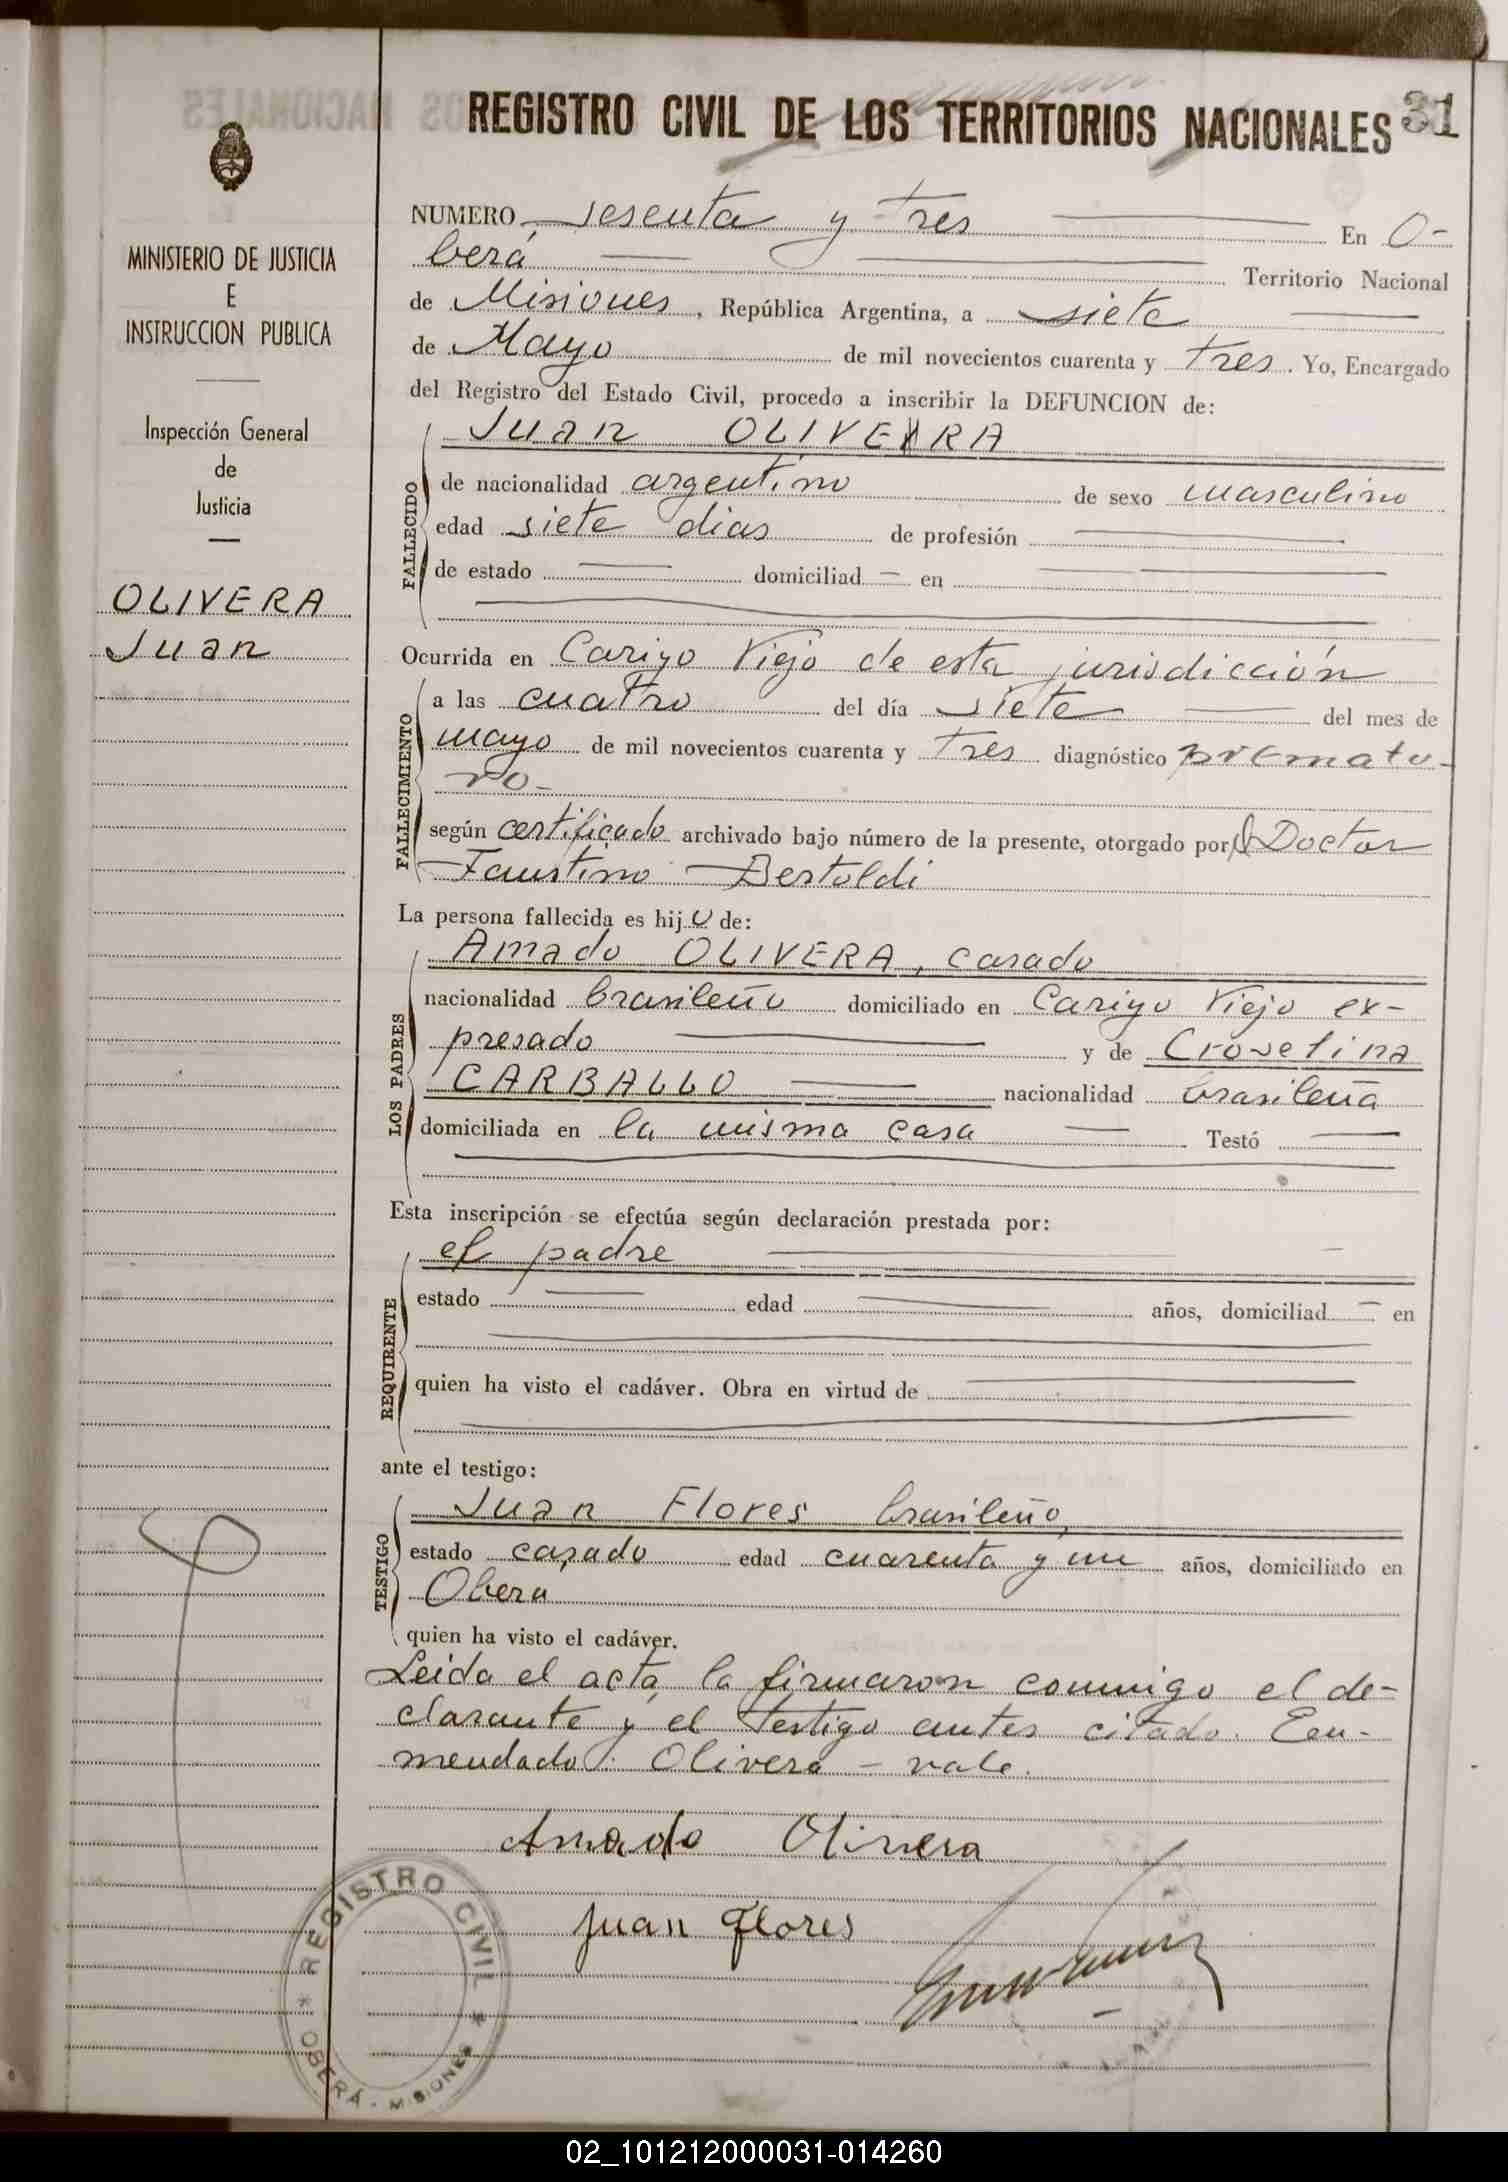 REGISTRO CIVIL DE LOS TERRITORIOS NACIONALES 31
MINISTERIO DE JUSTICIA
E
INSTRUCCION PUBLICA
Inspección General
de
Justicia
OLIVERA
Juan
NUMERO sesenta y tres En O-
berá Territorio Nacional
de Misiones, República Argentina, a siete
de Mayo de mil novecientos cuarenta y tres. Yo, Encargado
del Registro del Estado Civil, procedo a inscribir la DEFUNCION de:
FALLECIDO
Juan OLIVERA
de nacionalidad argentino de sexo masculino
edad siete dias de profesión
de estado domiciliad en
Ocurrida en Cariyo Viejo de esta jurisdicción
FALLECIMIENTO
a las cuatro del día siete del mes de
mayo de mil novecientos cuarenta y tres diagnóstico prematu-
ro-
según certificado archivado bajo número de la presente, otorgado por Doctor
Faustino Bertoldi
La persona fallecida es hijo de:
LOS PADRES
Amado OLIVERA, casado
nacionalidad brasileño domiciliado en Cariyo Viejo ex-
presado y de Crovetina
CARBALLO nacionalidad brasileña
domiciliada en la misma casa Testó
Esta inscripción se efectúa según declaración prestada por:
REQUIRENTE
el padre
estado edad años, domiciliad en
quien ha visto el cadáver. Obra en virtud de
ante el testigo:
TESTIGO
Juan Flores brasileño,
estado casado edad cuarenta y un años, domiciliado en
Obera
quien ha visto el cadáver.
Leida el acta, la firmaron conmigo el de-
clarante y el testigo antes citado. Een-
mendado: Olivera - vale.
Amado Olivera
Juan Flores
REGISTRO CIVIL
OBERÁ - MISIONES
02_101212000031-014260